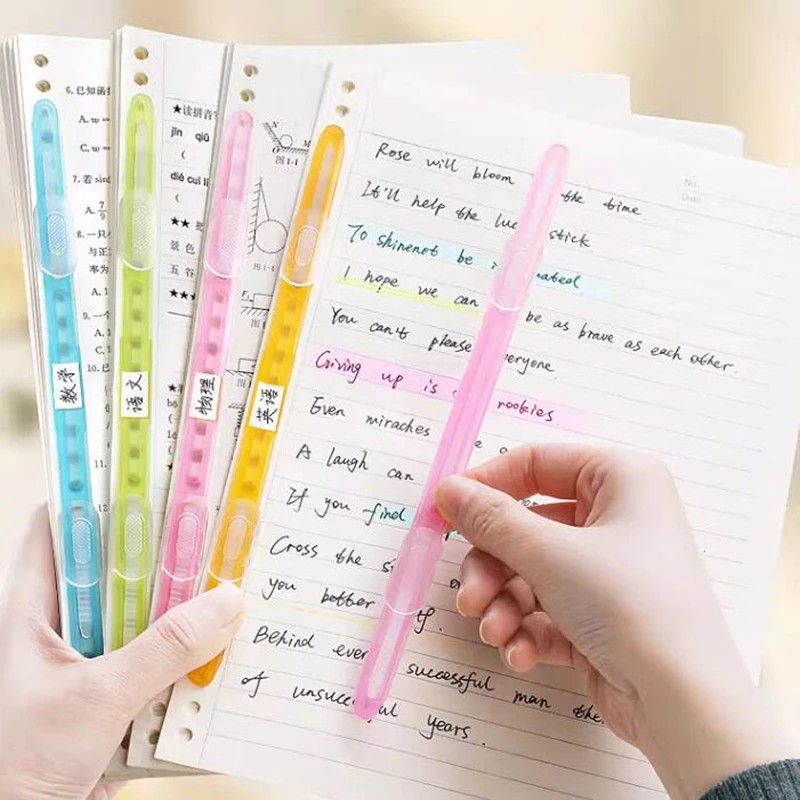 6.已知函
A.
C.
7.若sin
A. 7/9
8.一只
与正
率为
A.1
9.一个
A.
C.
10.已
11.
12
数学
★读拼音写
jīn qiū
(
dié cuī
(
★★
景色
五谷
★★★
语文
N
M
图1-1
图1-1
F
图
物理
英语
No.
Date
Rose will bloom the time.
It'll help the luc stick.
To shinenot be ated
I hope we can be as brave as each other.
You can't please eryone.
Giving up is rookies
Even miraches
A laugh can
If you find
Cross the s
you better If.
Behind ever successful man the
of unsucc ul years.